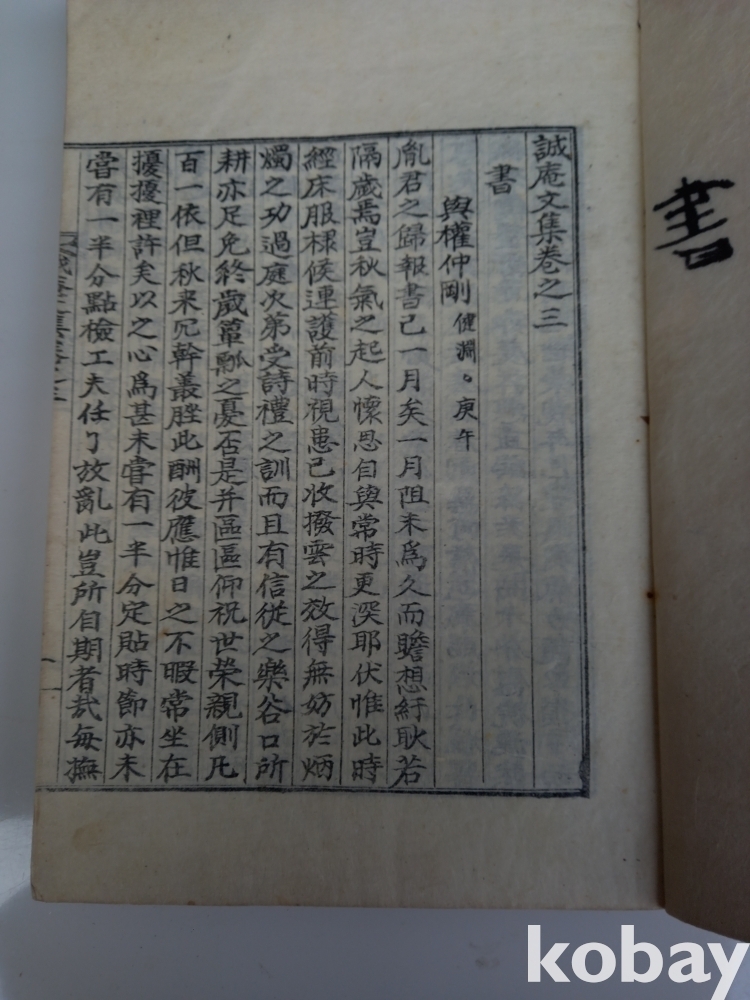 誠庵文集卷之三
書
與權仲剛 健淵。庚午
胤君之歸報書已一月矣一月阻未爲久而瞻想紆耿若
隔歲焉豈秋氣之起人懷思自與常時更深耶伏惟此時
經床服棣候連護前時視患已收撥雲之效得無妨於炳
燭之功過庭次第受詩禮之訓而且有信從之樂谷口所
耕亦足免終歲簞瓢之憂否是幷區區仰祝世榮親側凡
百一依但秋来冗幹叢脞此酬彼應惟日之不暇常坐在
擾擾裡許矣以之心爲甚未嘗有一半分定貼時節亦未
嘗有一半分點檢工夫任了放亂此豈所自期者哉每撫
書
kobay